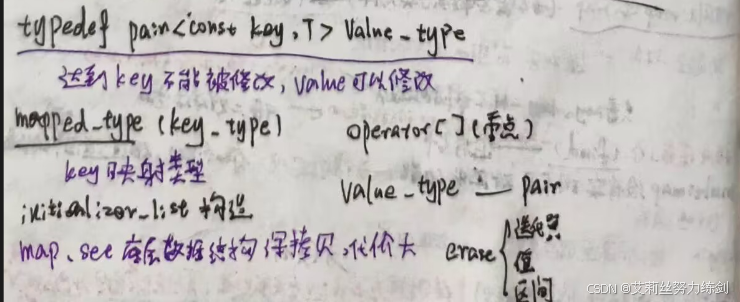 typedef pair<const key, T> Value_type
达到key不能被修改, value可以修改
mapped_type (key_type)
operator[](重点)
key映射类型
value_type — pair
initializer_list 构造
map、set 底层数据结构 深拷贝,代价大
erase { 迭代器
值
区间
CSDN @艾莉丝努力练剑